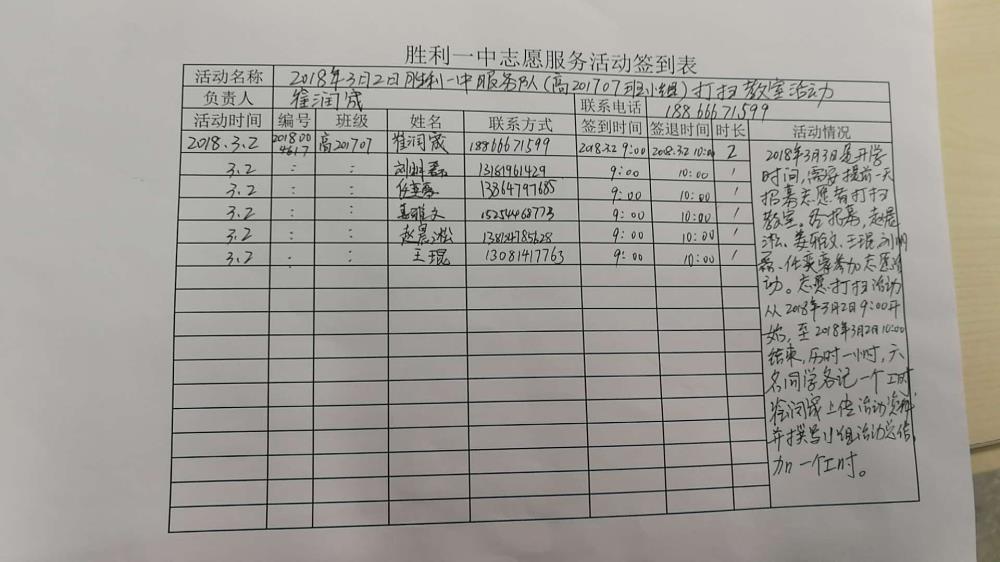 胜利一中志愿服务活动签到表
活动名称 2018年3月2日胜利一中服务队(高201707班小组)打扫教室活动
负责人 崔润晟 联系电话 18866671599
活动时间 编号 班级 姓名 联系方式 签到时间 签退时间 时长 活动情况
2018.3.2 2018004617 高201707 崔润晟 18866671599 2018.3.2 9:00 2018.3.2 10:00 2
3.2 : : 13181961429 9:00 10:00 1
3.2 : : 任奕蓉 13864797685 9:00 10:00 1
3.2 : : 姜雅文 15254468773 9:00 10:00 1
3.2 : : 赵晨淞 13814785628 9:00 10:00 1
3.2 : : 王琨 13081417763 9:00 10:00 1
2018年3月3日是开学
时间,需要提前一天
招募志愿者打扫
教室。经招募,赵晨
淞、姜雅文、王琨、刘明
磊、任奕蓉参加志愿活
动。志愿打扫活动
从2018年3月2日9:00开
始,至2018年3月2日10:00
结束,历时一小时,六
名同学各记一个工时
崔润晟上传活动资料
并撰写小组活动总结,
加一个工时。